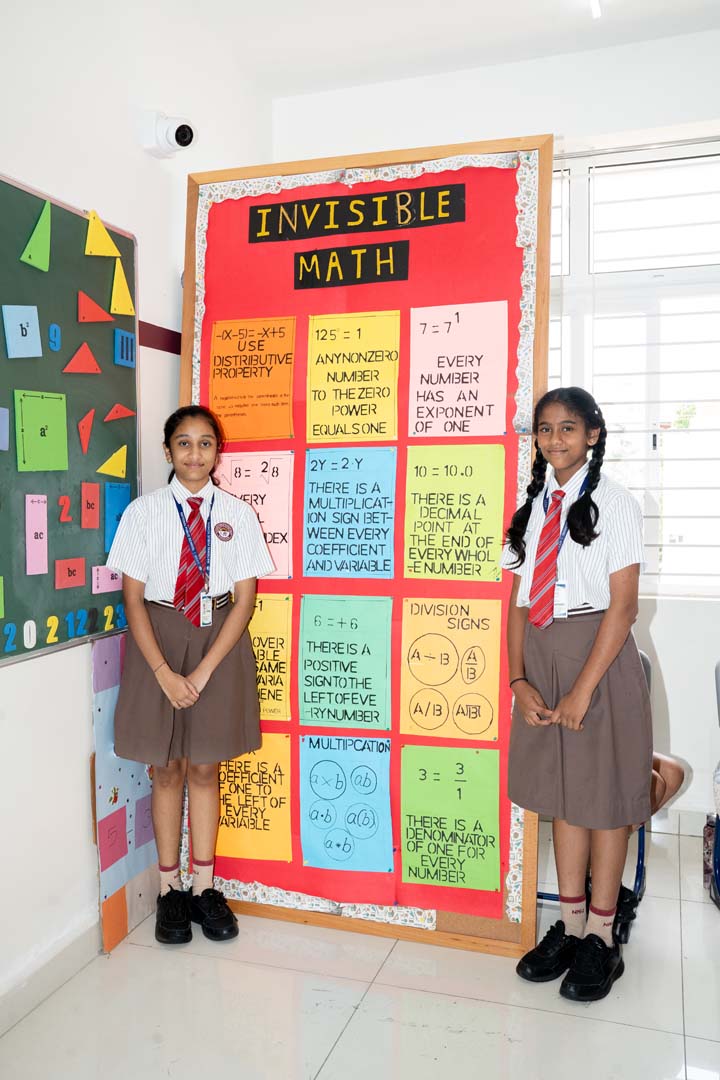 INVISIBLE
MATH
-(X-5)= -X+5
USE
DISTRIBUTIVE
PROPERTY
125° = 1
ANYNONZERO
NUMBER
TO THE ZERO
POWER
EQUALS ONE
7 = 7¹
EVERY
NUMBER
HAS AN
EXPONENT
OF ONE
√8 = ²√8
2Y = 2·Y
THERE IS A
MULTIPLICAT-
ION SIGN BET-
WEEN EVERY
COEFFICIENT
AND VARIABLE
10 = 10.0
THERE IS A
DECIMAL
POINT AT
THE END OF
EVERY WHOL
-E NUMBER
OVER
6 = +6
THERE IS A
POSITIVE
SIGN TO THE
LEFT OF EVE
-RY NUMBER
DIVISION
SIGNS
A ÷ B
A
B
A/B
HERE IS A
OEFFICIENT
OF ONE TO
HE LEFT OF
EVERY
VARIABLE
MULTIPCATION
a×b
ab
a·b
a(b)
a•b
3 = 3
1
THERE IS A
DENOMINATOR
OF ONE FOR
EVERY
NUMBER
b²
9
a²
ac
2
bc
bc
ac
2 0 2 12 2 23
5-
3